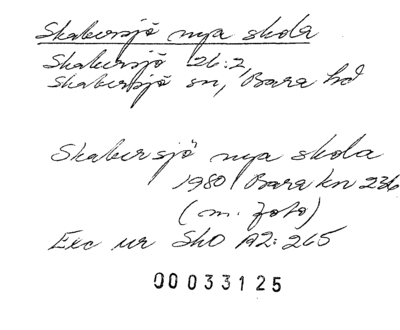 Skabersjö nya skola
Skabersjö 26:2,
Skabersjö sn, Bara hd
Skabersjö nya skola
1980 Bara kn 236
(m. foto)
Exc ur Sko A2:265
00033125